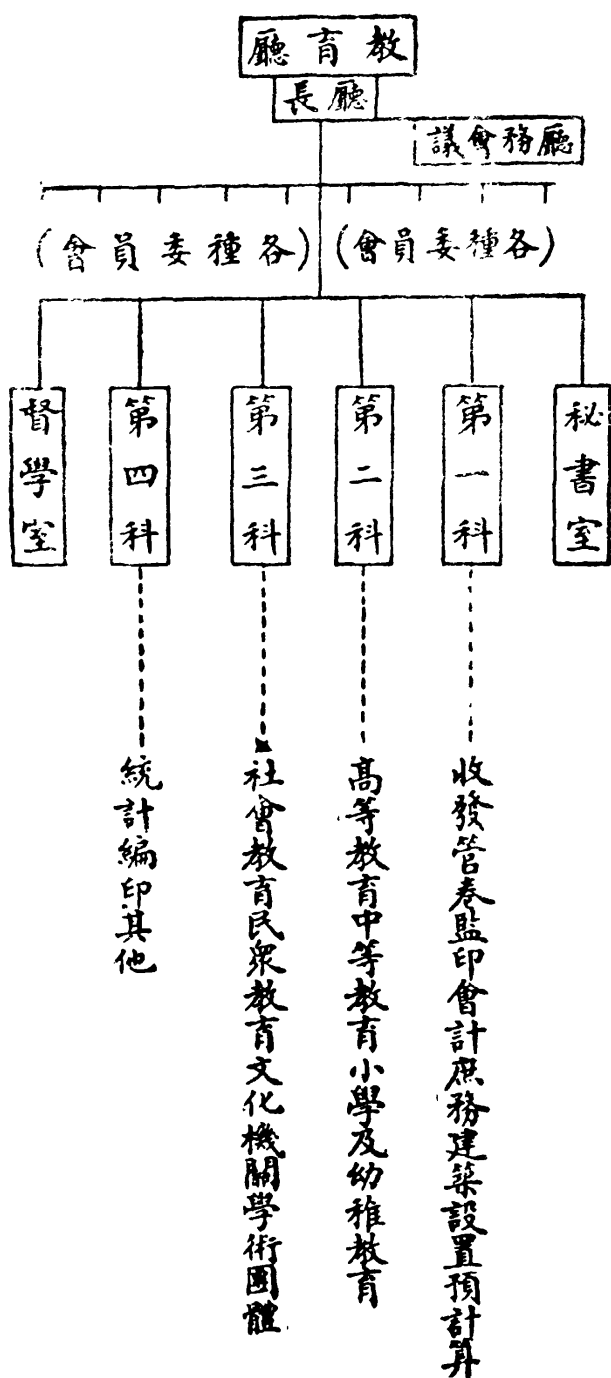 教育廳
廳長
廳務會議
(各種委員會)
(各種委員會)
秘書室
第一科
第二科
第三科
第四科
督學室
收發管卷監印會計庶務建築設置預計算
高等教育中等教育小學及幼稚教育
社會教育民眾教育文化機關學術團體
統計編印其他